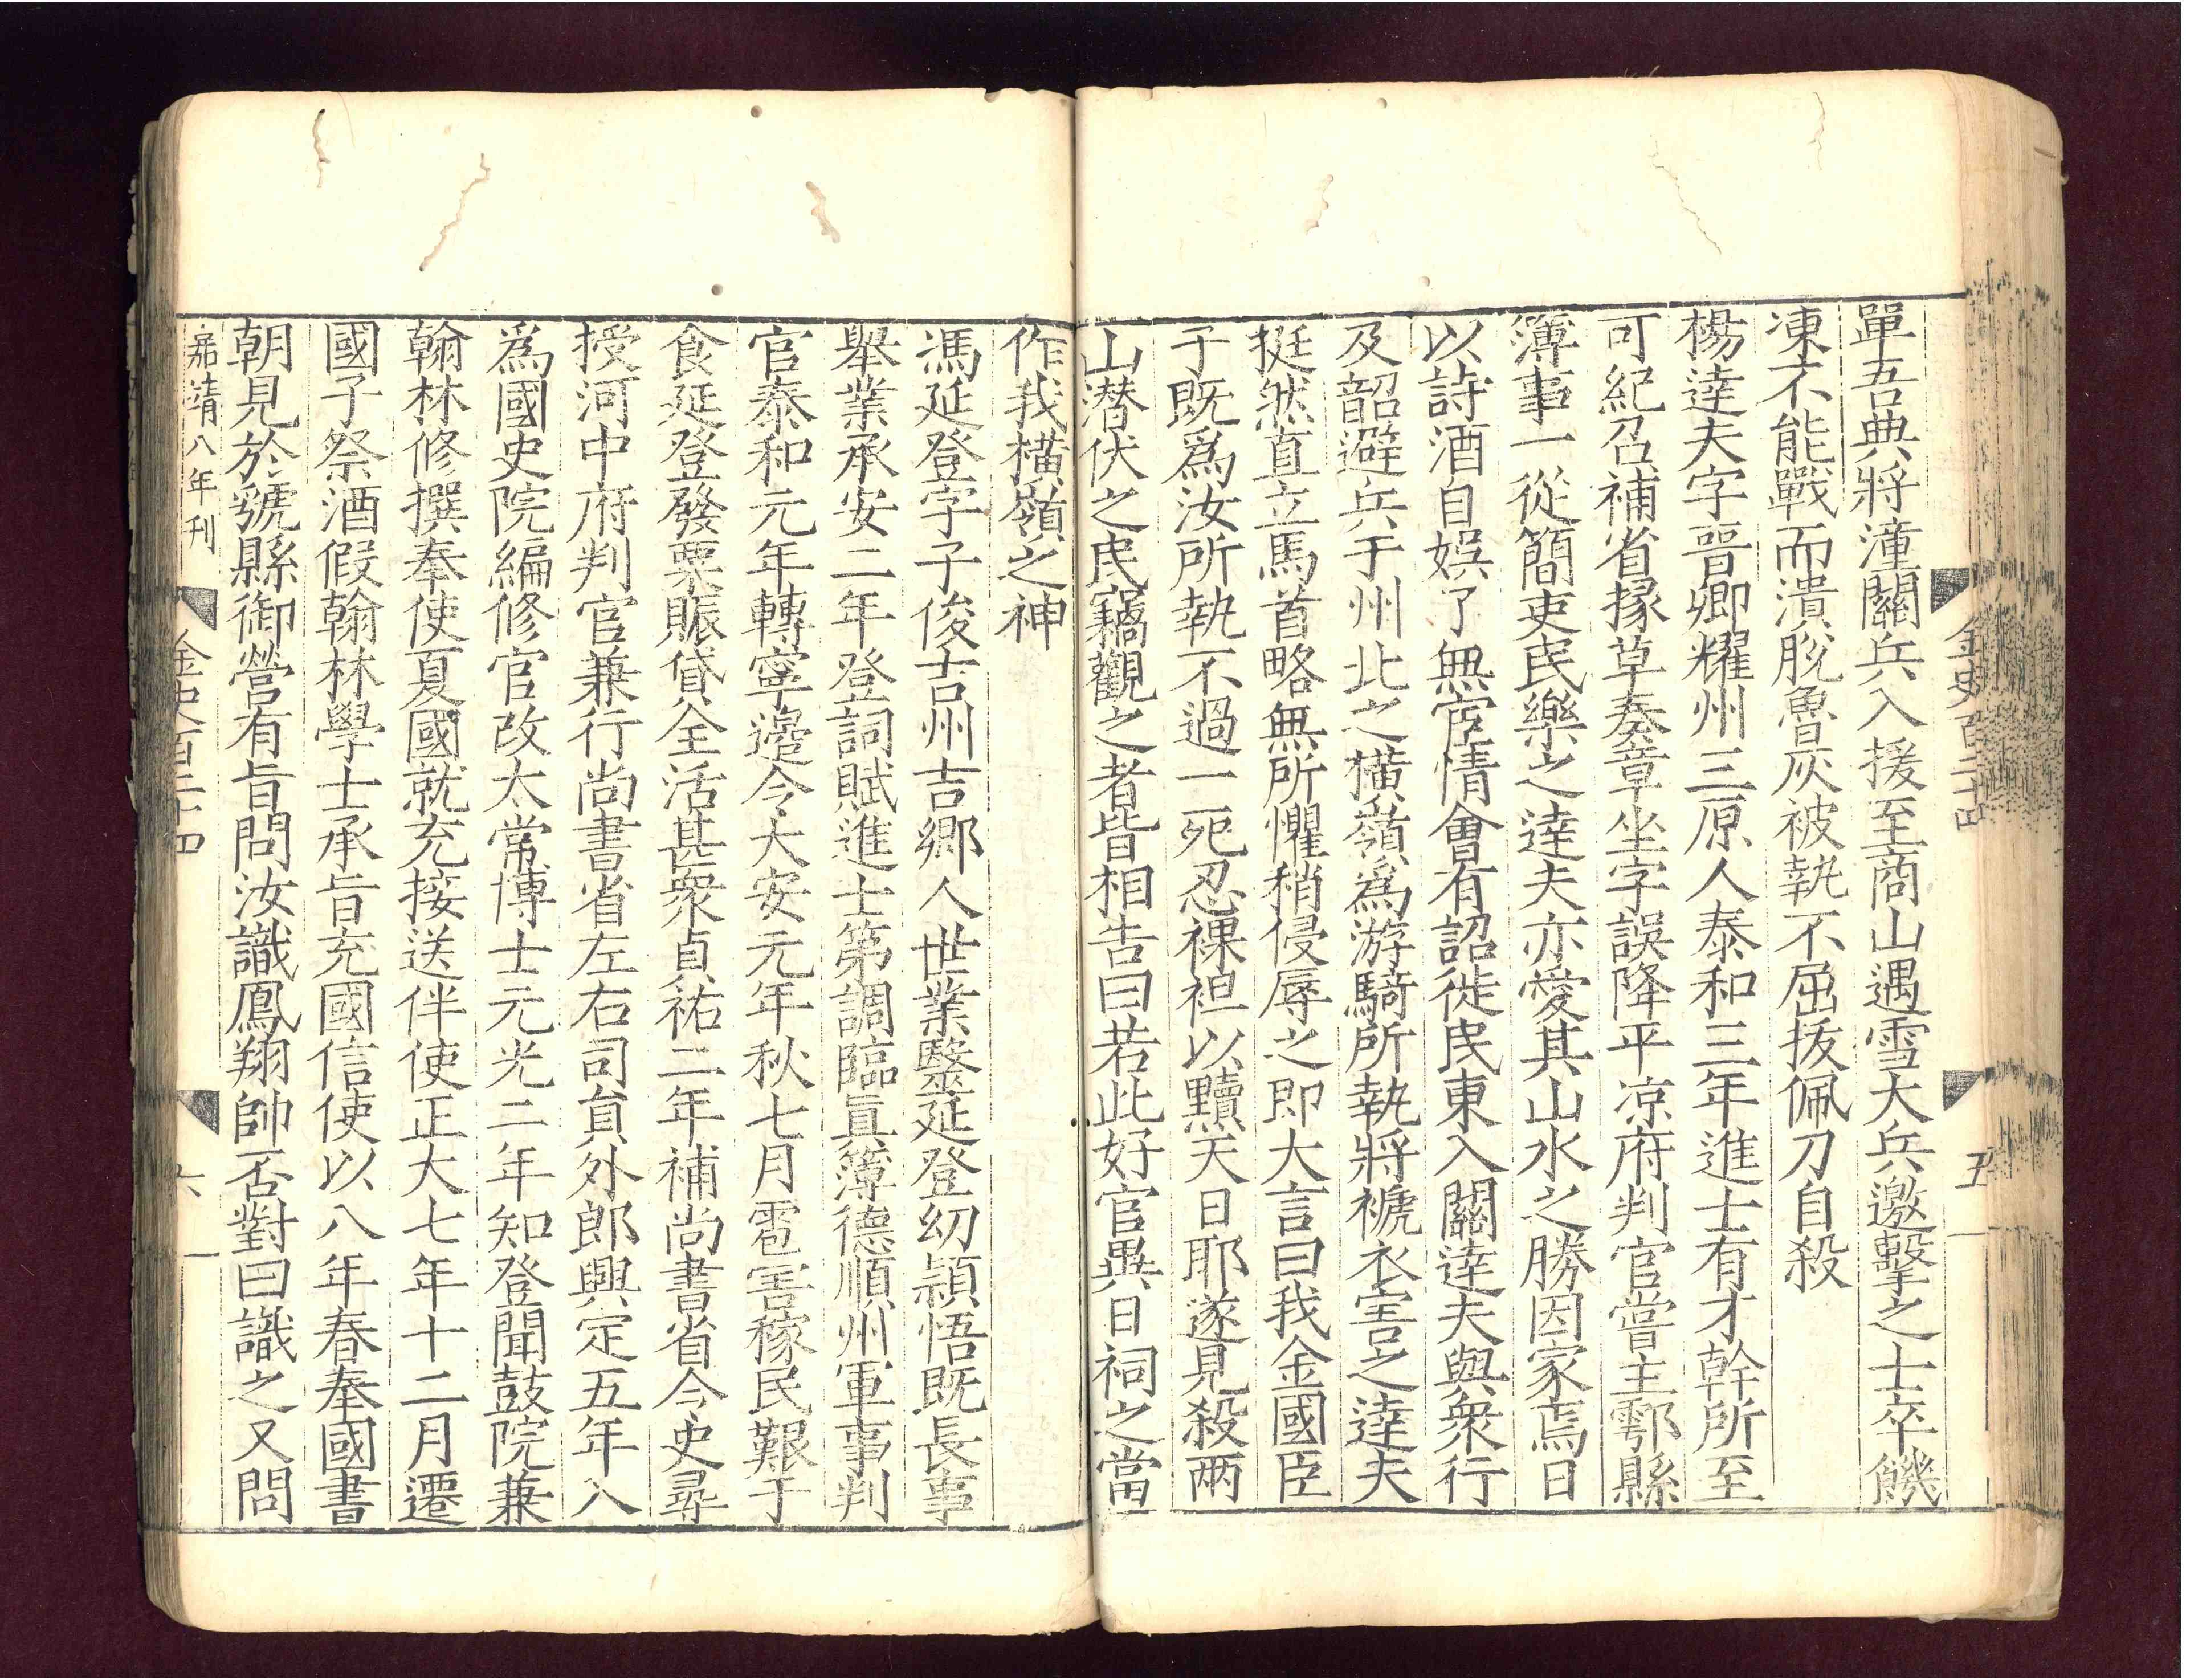 金史百二十四
五
單吾典將潼關兵入援至商山遇雪大兵邀擊之士卒饑
凍不能戰而潰脫魯灰被執不屈拔佩刀自殺
楊達夫字晉卿耀州三原人泰和三年進士有才幹所至
可紀召補省掾草奏章坐字誤降平凉府判官嘗主鄠縣
簿事一從簡吏民樂之達夫亦愛其山水之勝因家焉日
以詩酒自娛了無宦情會有詔徙民東入關達夫與衆行
及韶避兵于州北之橫嶺爲游騎所執將褫衣害之達夫
挺然直立馬首略無所懼稍侵辱之即大言曰我金國臣
子既爲汝所執不過一死忍裸袒以黷天日耶遂見殺兩
山潜伏之民竊觀之者皆相告曰若此好官異日祠之當
作我橫嶺之神
馮延登字子俊吉州吉鄉人世業醫延登幼穎悟既長事
舉業承安二年登詞賦進士第調臨眞簿德順州軍事判
官泰和元年轉寧邊令大安元年秋七月雹害稼民艱于
食延登發粟賑貸全活甚衆貞祐二年補尚書省令史尋
授河中府判官兼行尚書省左右司員外郎興定五年入
爲國史院編修官改太常博士元光二年知登聞鼓院兼
翰林修撰奉使夏國就充接送伴使正大七年十二月遷
國子祭酒假翰林學士承旨充國信使以八年春奉國書
朝見於虢縣御營有旨問汝識鳳翔帥否對曰識之又問
嘉靖八年刊
金史百二十四
六